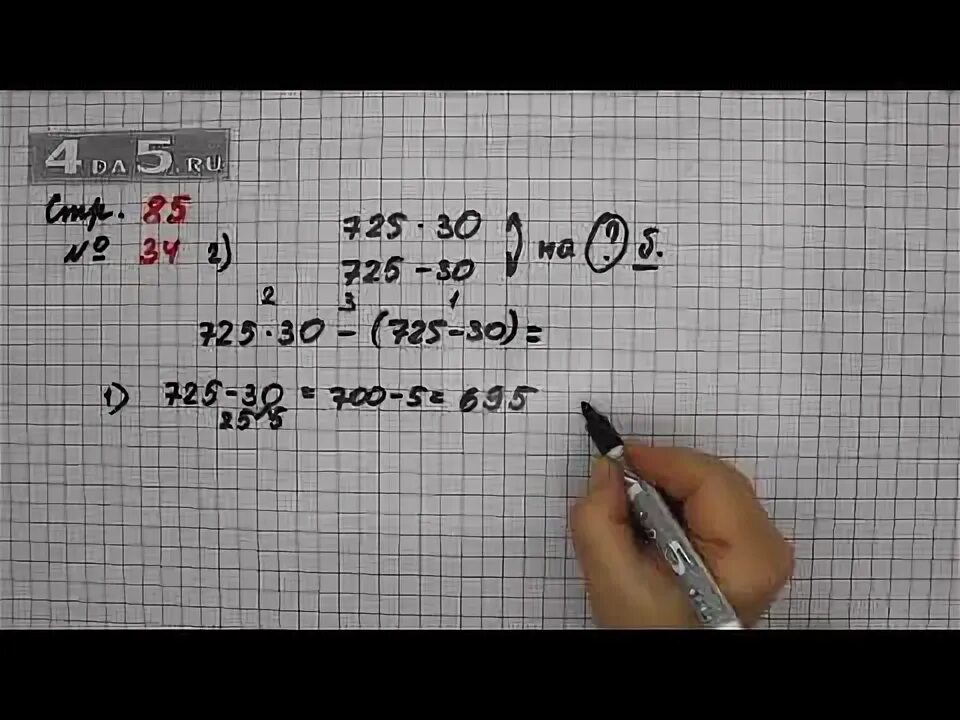 4DA5.RU
Стр. 85
№ 34 2)
725 · 30
725 - 30
на ? б.
2 3 1
725 · 30 - (725 - 30) =
1) 725 - 30 = 700 - 5 = 695
25 5